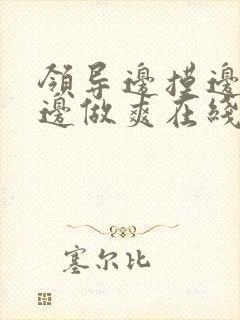 領导邊摸邊
邊做爽在綫
塞尔比